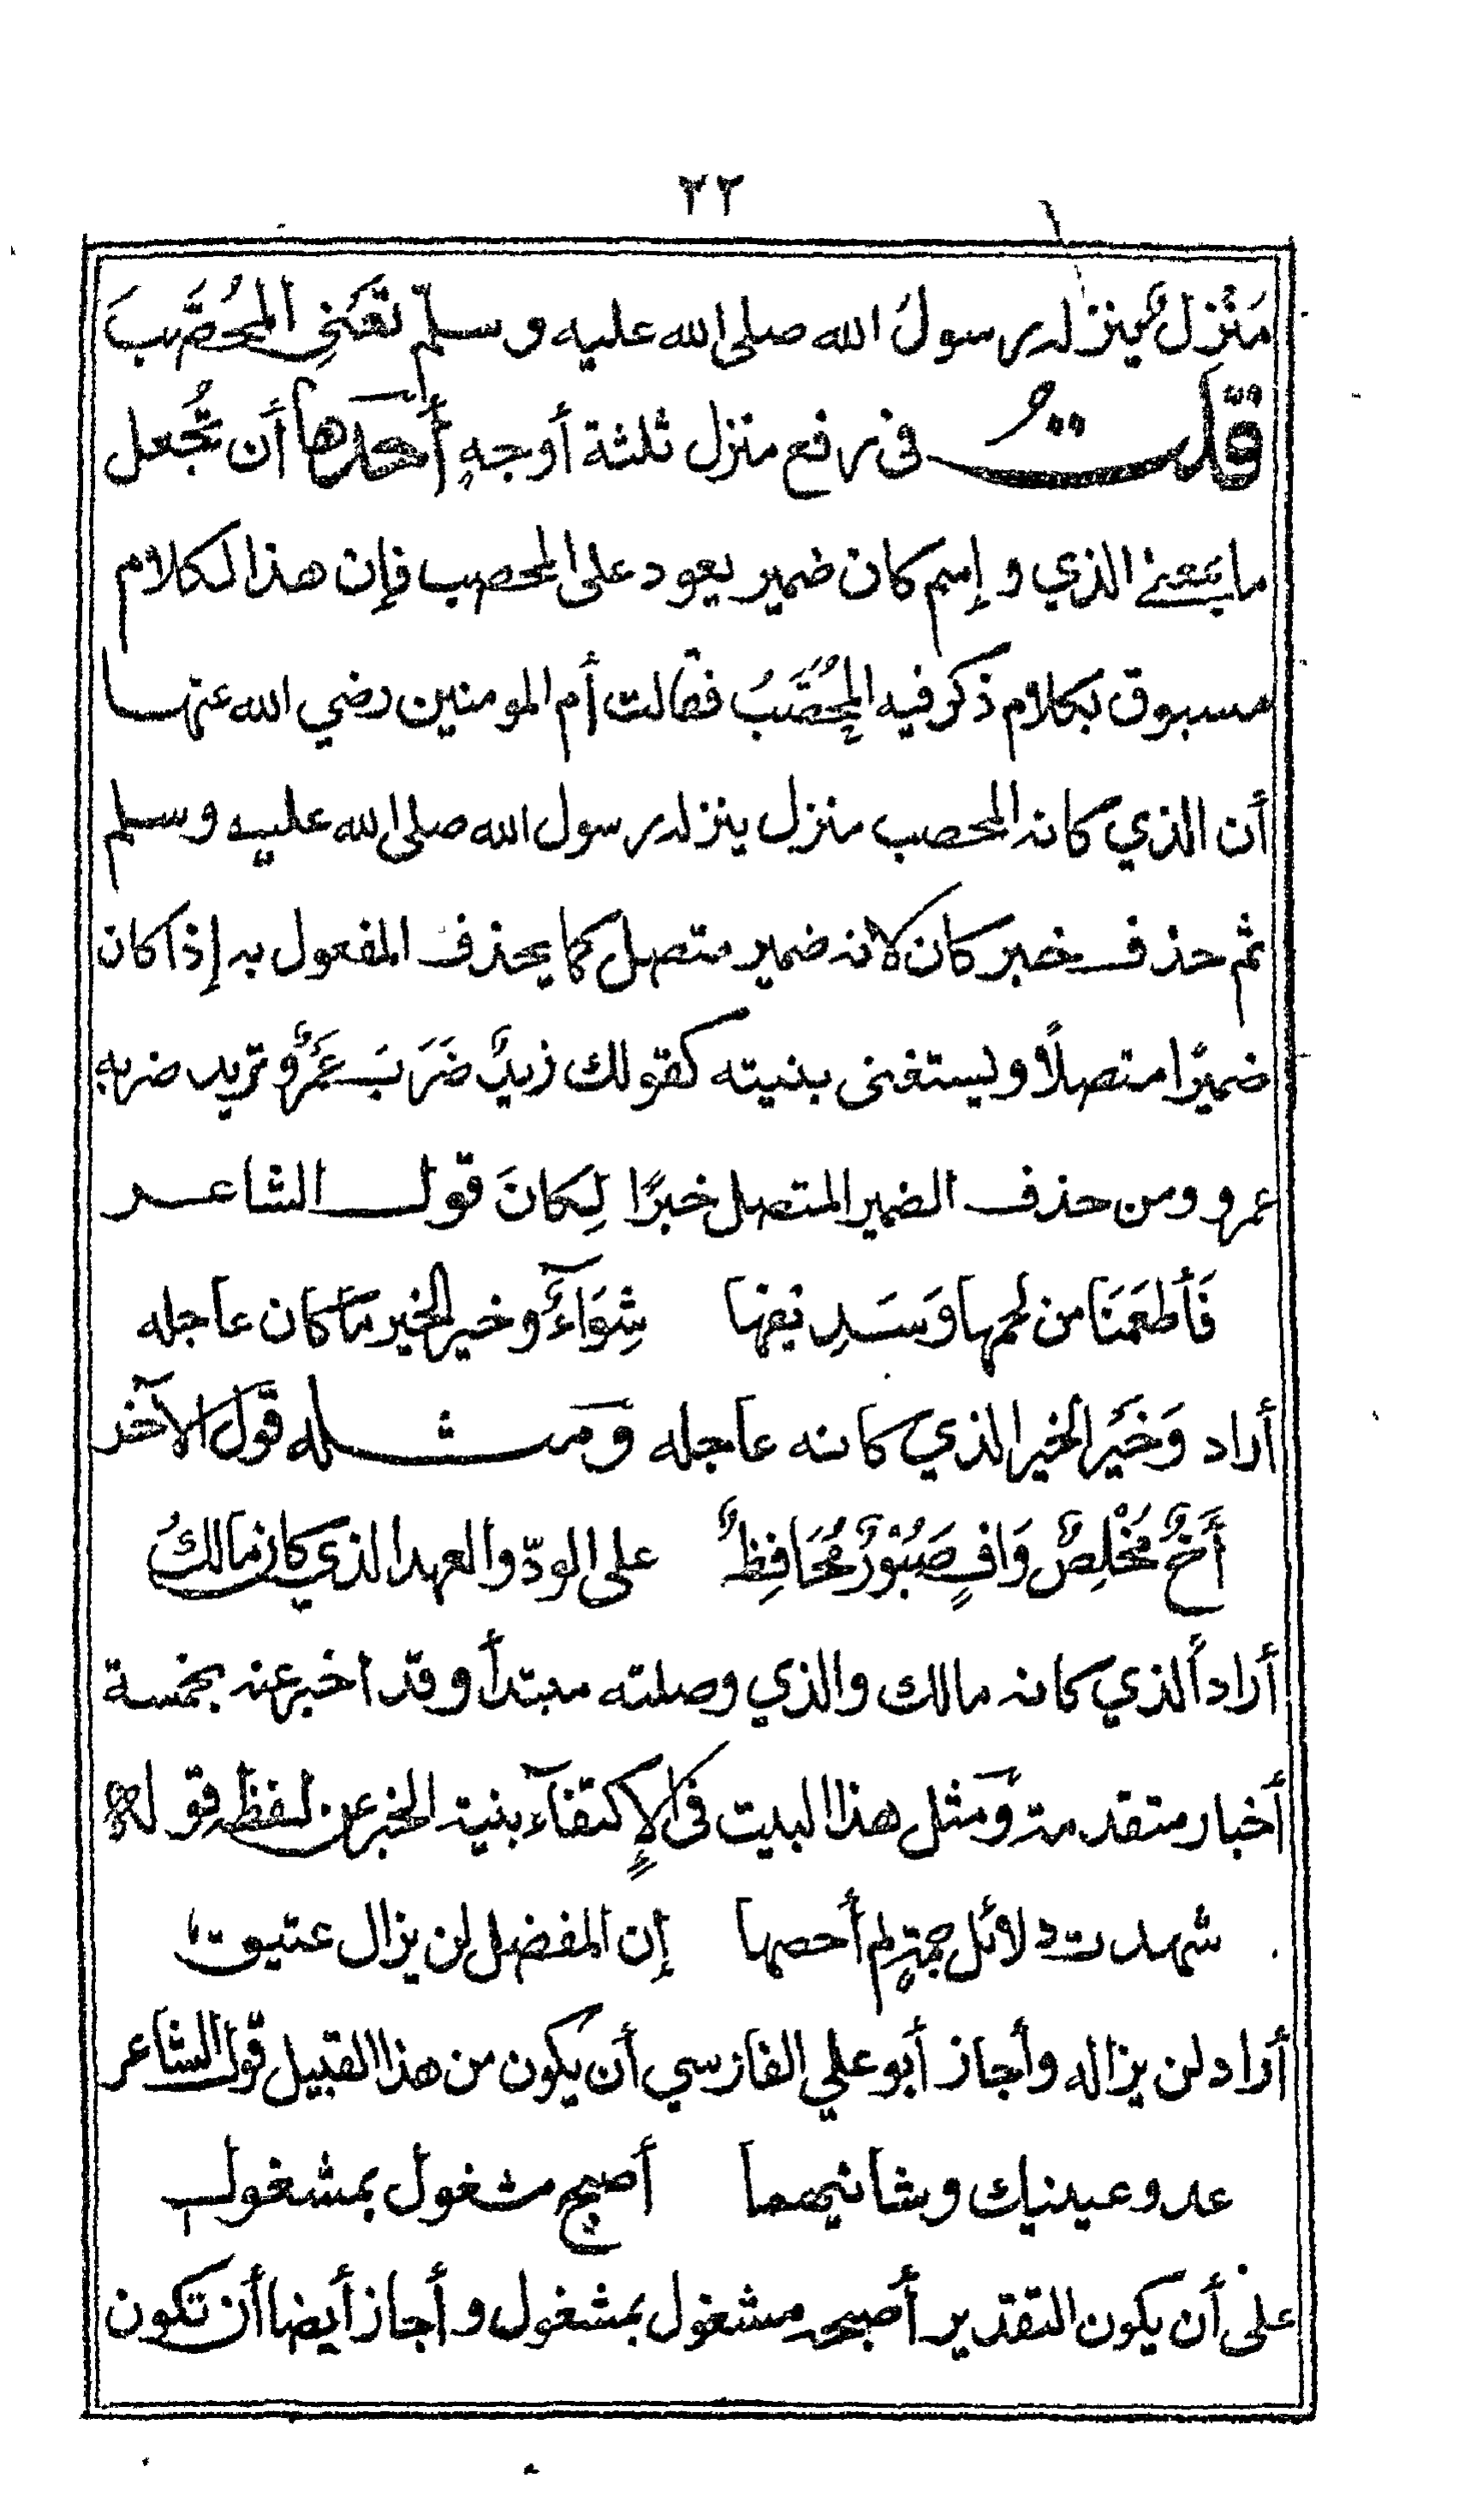 ٢٢
مَنْزِلٌ ينزله رسولُ الله صلى الله عليه وسلم تَعْنِي المُحَصَّبَ
قلت في رفع منزل ثلثة أوجهٍ أحدها أن تُجعل
ما بمعنى الذي و إسم كان ضمير يعود على المحصب فإن هذا الكلام
مسبوق بكلام ذكر فيه المُحَصَّبُ فقالت أم المومنين رضي الله عنها
أن الذي كانه المحصب منزل ينزله رسول الله صلى الله عليه وسلم
ثم حذف خبر كان لانه ضمير متصل كما يحذف المفعول به إذا كان
ضميرًا متصلاً و يستغنى بنيته كقولك زيدٌ ضَرَبَ عَمْرٌو تريد ضربه
عمرو ومن حذف الضمير المتصل خبرًا لِكانَ قول الشاعر
فَأَطعَمَنَا من لحمها وَسَدِيفها شِوَآءً وخير الخير ما كان عاجله
أراد وَخَيْر الخير الذي كانه عاجله ومثله قول الآخر
أَخٌ مُخْلِصٌ وَافٍ صَبُوْرٌ مُحَافِظٌ على الودّ والعهد الذي كان مالكُ
أراد الذي كانه مالك والذي وصلته مبتدأ وقد اخبر عنه بخمسة
أخبار متقدمة ومثل هذا البيت في الإكتفآء بنية الخبر عن لفظه قوله
شهدت دلائل جمةٍ لم أحصها إن المفضل لن يزال عتيق
أراد لن يزاله وأجاز أبو علي الفارسي أن يكون من هذا القبيل قول الشاعر
عدو عينيك وشانيهما أصبح مشغول بمشغول
على أن يكون التقدير أصبحه مشغول بمشغول و أجاز أيضا أن تكون